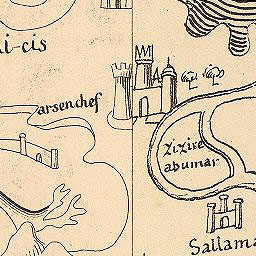 ci-cis
arsenchef
Zizire
abumar
Sallama